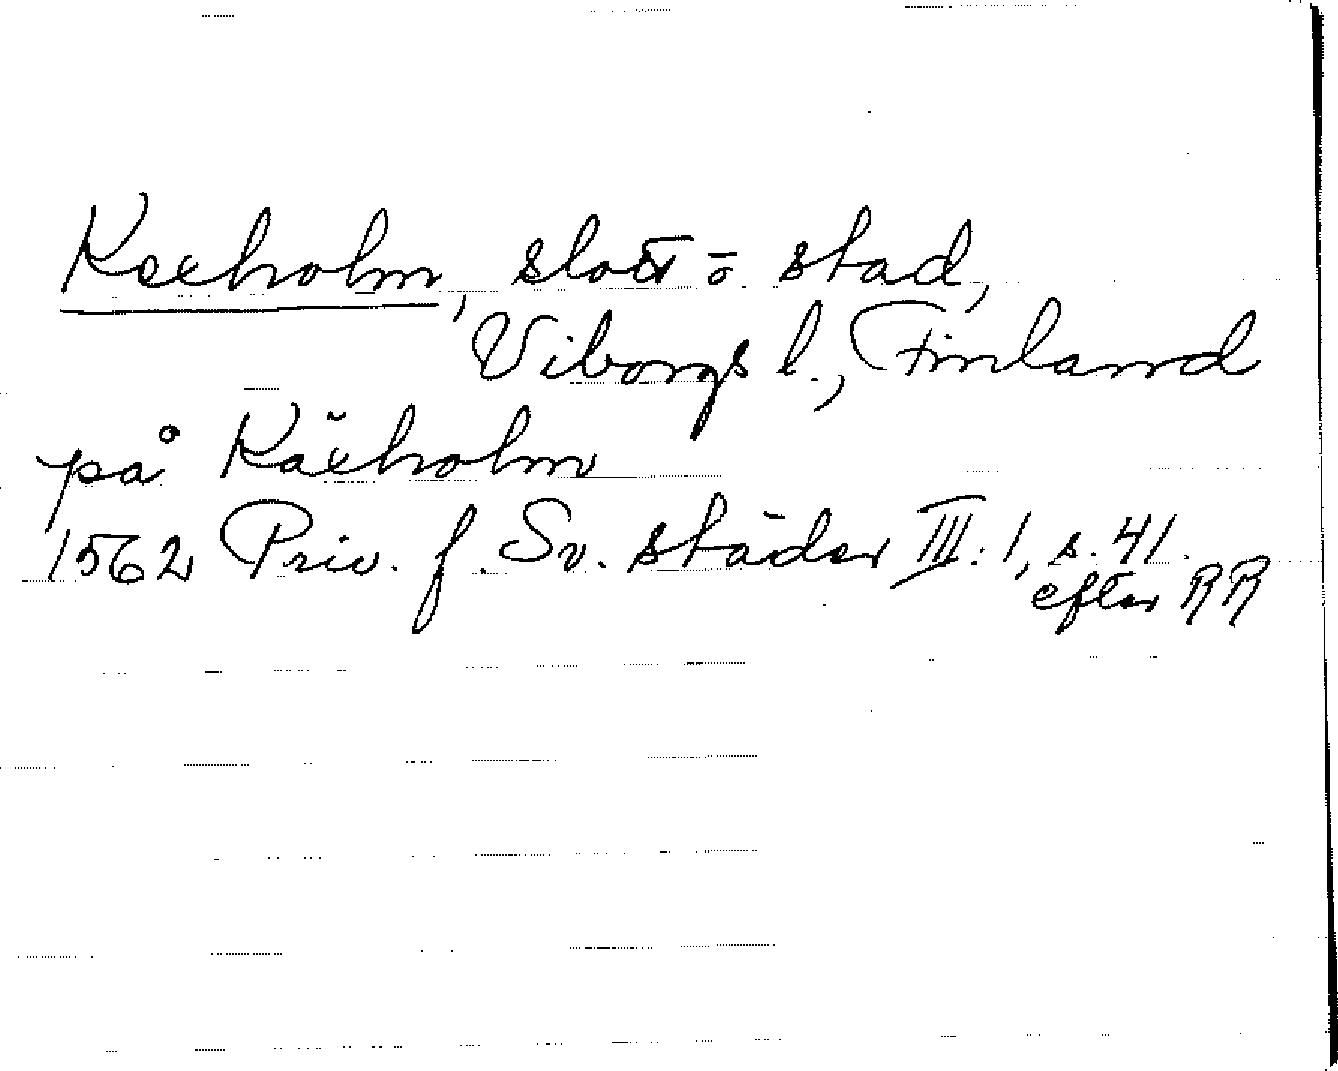 Kexholm, slott ō stad,
Viborgs l., Finland
på Käxholm
1562 Priv. f. Sv. städer III:1, s. 41.
efter RR